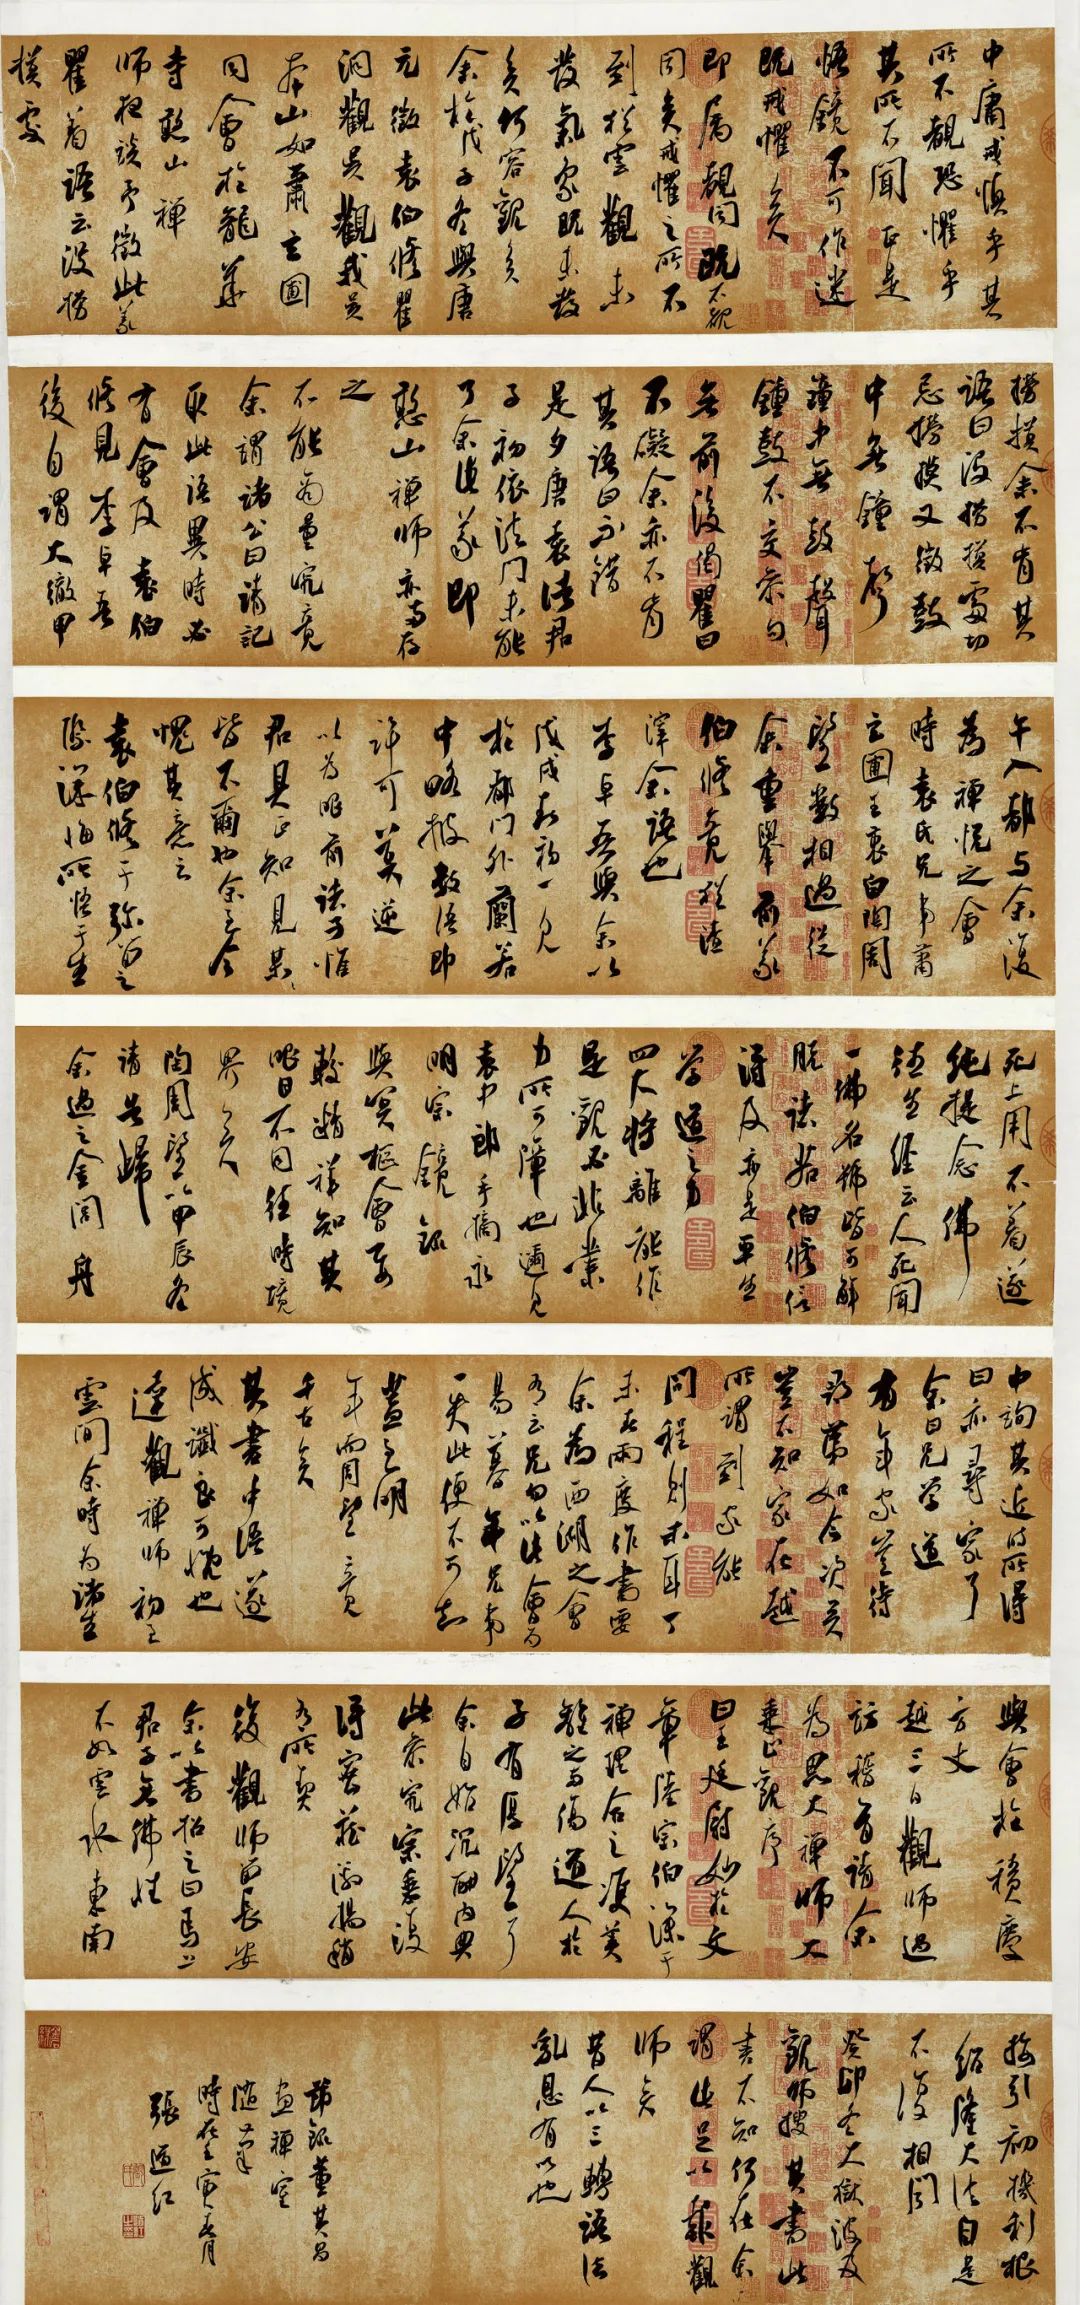 中庸戒慎乎其
所不覩恐懼乎
其所不聞正是
悟鏡不可作迷
既戒懼矣
即屬覩聞既不覩
聞矣戒懼之所不
到於雲觀未
發氣象既未發
矣何容觀矣
余於戊子冬與唐
元徵袁伯修瞿
洞觀吳觀我吳
本山如蕭玄圃
同會於龍華
寺憨山禪
師夜談予徵此義
瞿着語云没撈
摸處
撈摸余不肯其
語曰没撈摸處切
忌撈摸又徵鼓
中無鐘聲
鐘中無鼓聲
鐘鼓不交參句句
無前後偈瞿曰
不礙余亦不肯
其語曰不錯
是夕唐袁諸君
子初依法門未能
了余此義即
憨山禪師亦兩存
之
不能為量究竟
余謂諸公曰請記
取此語異時必
有會及袁伯
修見李卓吾
後自謂大徹甲
午入都与余復
為禪悅之會
時袁氏兄弟蕭
玄圃王衷白陶周
望數相過從
余重舉前義
伯修竟猶溟
涬余語也
李卓吾與余以
戊戌春初一見
於都門外蘭若
中略披數語即
許可莫逆
以為眼前諸子惟
君具正知見某某
皆不爾也余至今
愧其意云
袁伯修于彌留之
際深悔所悟于生
死上用不着遂
純提念佛
往生經云人死聞
一佛名號皆可解
脫諸苦伯修信
得及亦是平生
學道之力
四大將離能作
是觀必非業
力所可障也邇見
袁中郎手摘永
明宗鏡錄
與冥樞會要
較精詳知其
眼目不同往時境
界矣
陶周望以甲辰冬
請告歸
余遇之金閶舟
中詢其近時所得
曰亦尋家了
余曰兄學道
有年家豈待
尋第如今次吳
豈不知家在越
所謂到家能
問程則未耳丁
未春兩度作書要
余為西湖之會
有云兄勿以此會為
易暮年兄弟
一失此便不可知
蓋至明
年而周望竟
千古矣
其書中語遂
成讖良可慨也
達觀禪師初至
雲間余時為諸生
與會於積慶
方丈
越三日觀師過
訪稽首請余
為思大禪師大
乘止觀序
曰王廷尉妙於文
章陸宗伯深于
禪理合之雙美
離之兩傷道人於
子有厚望耳
余自始沉酣內典
參究宗乘復
得密藏激揚稍
有所契
後觀師留長安
余以書招之曰馬上
君子無佛性
不如雲水東南
接引初機利根
紹隆大法自是
不復相聞
癸卯冬大獄波及
觀師搜其書此
書不知何在余
謂此足以報觀
師矣
昔人以三轉語法
乳恩有以也
節錄董其昌
畫禪室
隨筆
時在壬寅春月
張道紅